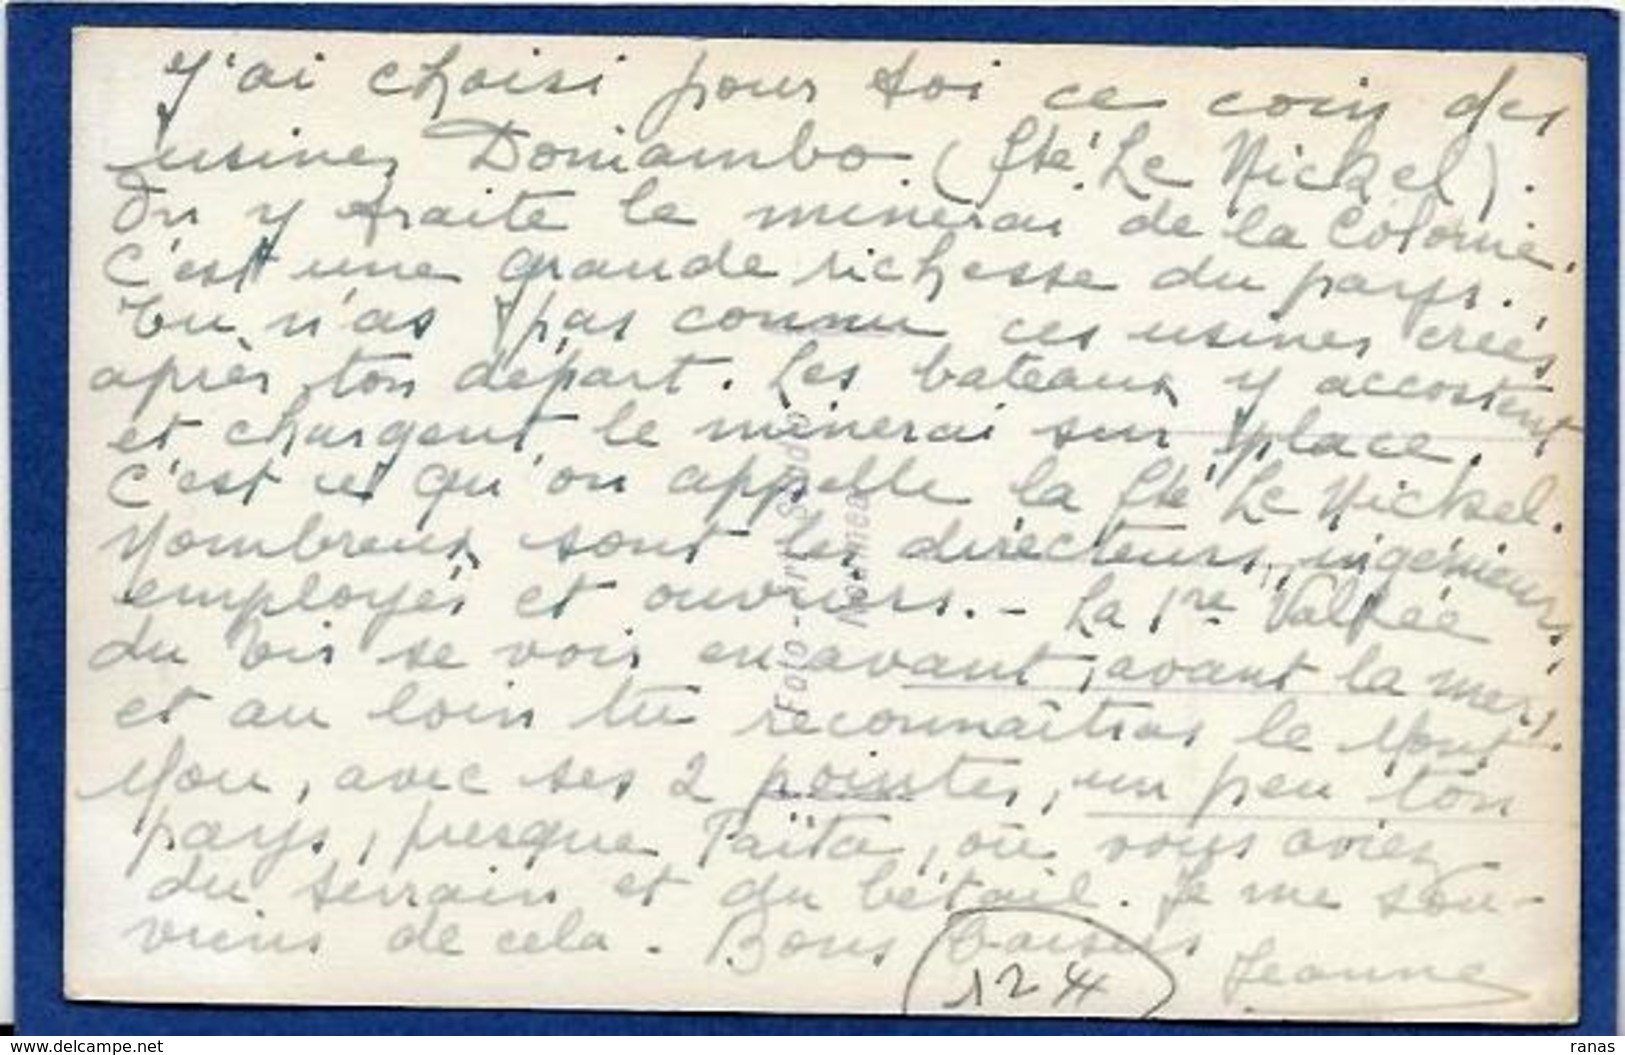 J'ai choisi pour toi ce coin des
usines Doniambo (Sté Le Nickel).
On y traite le minerai de la Colonie.
C'est une grande richesse du pays.
Tu n'as pas connu ces usines créés
après ton départ. Les bateaux y accostent
et chargent le minerai sur place.
C'est ce qu'on appelle la Sté Le Nickel.
Nombreux sont les directeurs, ingénieurs,
employés et ouvriers. - La 1re Vallée
du Tir se voit en avant, avant la mer,
et au loin tu reconnaîtras le Mont
Mou, avec ses 2 pointes, un peu ton
pays, presque Païta, où vous aviez
du terrain et du bétail. Je me sou-
viens de cela. Bons baisers
Jeanne
124
Nouméa
www.delcampe.net
ranas